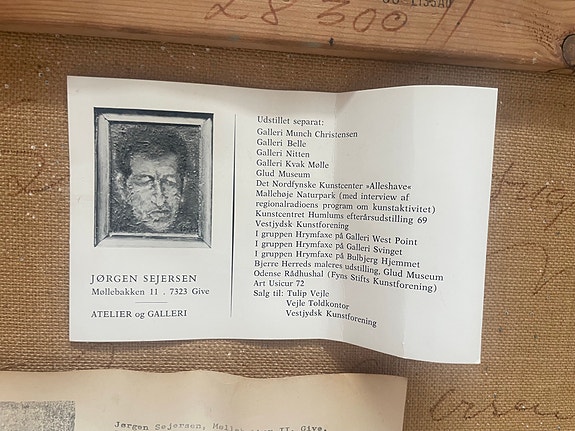 28 300
Udstillet separat:
Galleri Munch Christensen
Galleri Belle
Galleri Nitten
Galleri Kvak Mølle
Glud Museum
Det Nordfynske Kunstcenter »Alleshave«
Mallehøje Naturpark (med interview af
regionalradioens program om kunstaktivitet)
Kunstcentret Humlums efterårsudstilling 69
Vestjydsk Kunstforening
I gruppen Hrymfaxe på Galleri West Point
I gruppen Hrymfaxe på Galleri Svinget
I gruppen Hrymfaxe på Bulbjerg Hjemmet
Bjerre Herreds maleres udstilling, Glud Museum
Odense Rådhushal (Fyns Stifts Kunstforening)
Art Usicur 72
Salg til: Tulip Vejle
Vejle Toldkontor
Vestjydsk Kunstforening
JØRGEN SEJERSEN
Møllebakken 11 . 7323 Give
ATELIER og GALLERI
Jørgen Sejersen, Møllebakken II, Give,